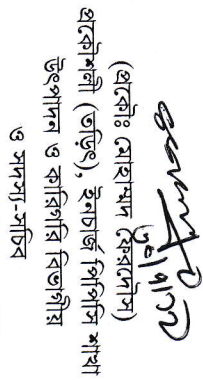 (প্রকৌঃ মোহাম্মদ ফেরদৌস)
প্রকৌশলী (তড়িৎ), ইনচার্জ পিপিসি শাখা
উৎপাদন ও কারিগরি বিভাগীয়
ও সদস্য-সচিব